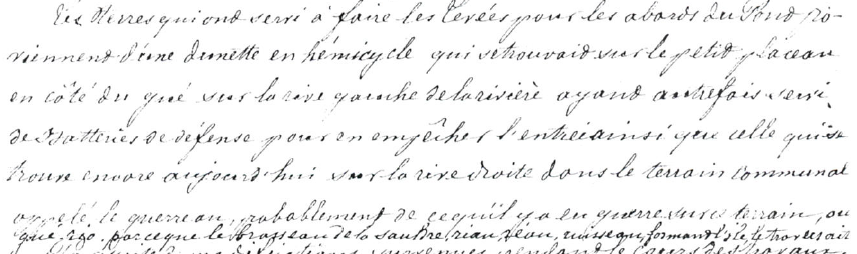 Les terres qui ont servi à faire les levées pour les abords du Pond pro-
viennent d'une dunette en hémicycle qui se trouvaid sur le petit placeau
en côté du gué sur la rive gauche de la rivière ayand autrefois servi
de Batteries de défense pour en empêcher l'entrée ainsi que celle qui se
trouve encore aujourd'hui sur la rive droite dans le terrain communal
appelé le guerreau, probablement de ce qu'il y a eu guerre sur ce terrain, ou
gué, rio, parceque le brasseau de la sauldre, riau, ruisseau, formand l'île le traversait
survenues pendant le cours des travaux